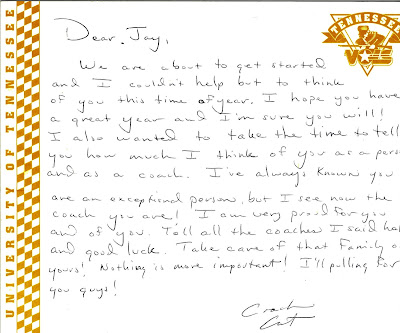 UNIVERSITY OF TENNESSEE
TENNESSEE
VOLS
Dear Jay,
We are about to get started
and I couldn't help but to think
of you this time of year. I hope you have
a great year and I'm sure you will!
I also wanted to take the time to tell
you how much I think of you as a pers
and as a coach. I've always known you
are an exceptional person, but I see now the
coach you are! I am very proud for you
and of you. Tell all the coaches I said
and good luck. Take care of that family o
yours! Nothing is more important! I'll pulling for
you guys!
Coach